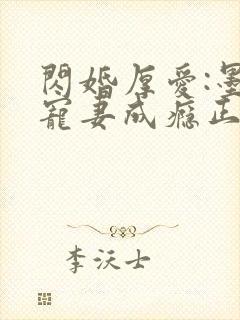 閃婚厚愛:墨
寵妻成癮正
李沃士